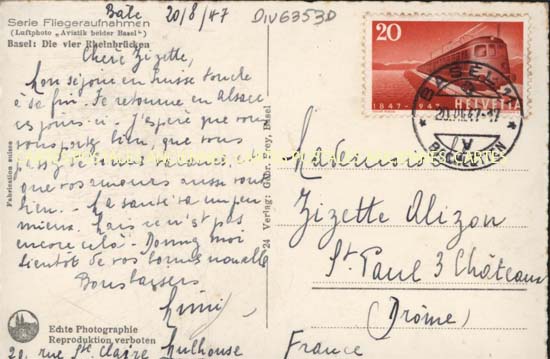 Bale 20/8/47
DIV6353D
Serie Fliegeraufnahmen
(Luftphoto „Aviatik beider Basel")
Basel: Die vier Rheinbrücken
Chère Zizette,
Mon séjour en Suisse touche
à sa fin. Je retourne en Alsace
ces jours-ci. J'espère que vous
vous portez bien, que vous
passez de bonnes vacances, et
que vos amours aussi vont
bien. - La santé va un peu
mieux. Mais ce n'est pas
encore cela - Donnez moi
bientôt de vos bonnes nouvelles
Bons baisers
20, rue Ste Claire Mulhouse
Echte Photographie
Reproduktion verboten
Fabrication suisse
24 Verlag: Basel
20
1847-1947 HELVETIA
BASEL 1
Mademoiselle
Zizette Alizon
St. Paul 3 Châteaux
(Drôme)
France